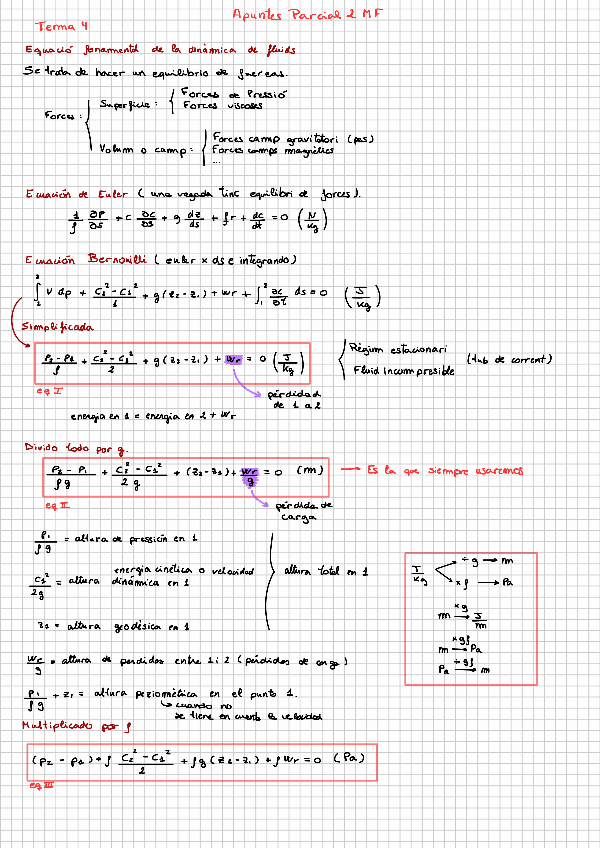 Apuntes Parcial 2 MF
Tema 4
Equació fonamental de la dinàmica de fluids
Se trata de hacer un equilibrio de fuerzas.
Forces :
Superficie :
Forces de Pressió
Forces viscoses
Volum o camp :
Forces camp gravitatori (pes)
Forces camps magnètics
...
Ecuación de Euler ( una vegada tinc equilibri de forces ).
1/ρ ∂P/∂s + c ∂c/∂s + g dz/ds + fr + dc/dt = 0 (N/kg)
Ecuación Bernouilli ( euler x ds e integrando )
+ g(z₂ - z₁) + wr + ∫₁² ∂c/∂t ds = 0 (J/kg)
Simplificada
+ (C₂² - C₁²)/2 + g(z₂ - z₁) + wr = 0 (J/kg)
Règim estacionari
Fluid incompresible
(tub de corrent)
eq I
pérdidad
de 1 a 2
energia en 1 = energia en 2 + wr
Divido todo por g.
(P₂ - P₁)/ρg + (C₂² - C₁²)/2g + (z₂ - z₁) + wr/g = 0 (m)
Es la que siempre usaremos
eq II
pérdida de
carga
P₁/ρg = altura de pressión en 1
energía cinética o velocidad
C₁²/2g = altura dinámica en 1
altura total en 1
z₁ = altura geodésica en 1
J/kg
÷ g → m
x ρ → Pa
m x g → J/m
m x gρ → Pa
Pa ÷ gρ → m
wr/g = altura de perdidas entre 1 i 2 ( pérdidas de carga )
P₁/ρg + z₁ = altura peziométrica en el punto 1.
cuando no
se tiene en cuenta la velocidad
Multiplicado por ρ
(P₂ - P₁) + ρ (C₂² - C₁²)/2 + ρg(z₂ - z₁) + ρwr = 0 (Pa)
eq III